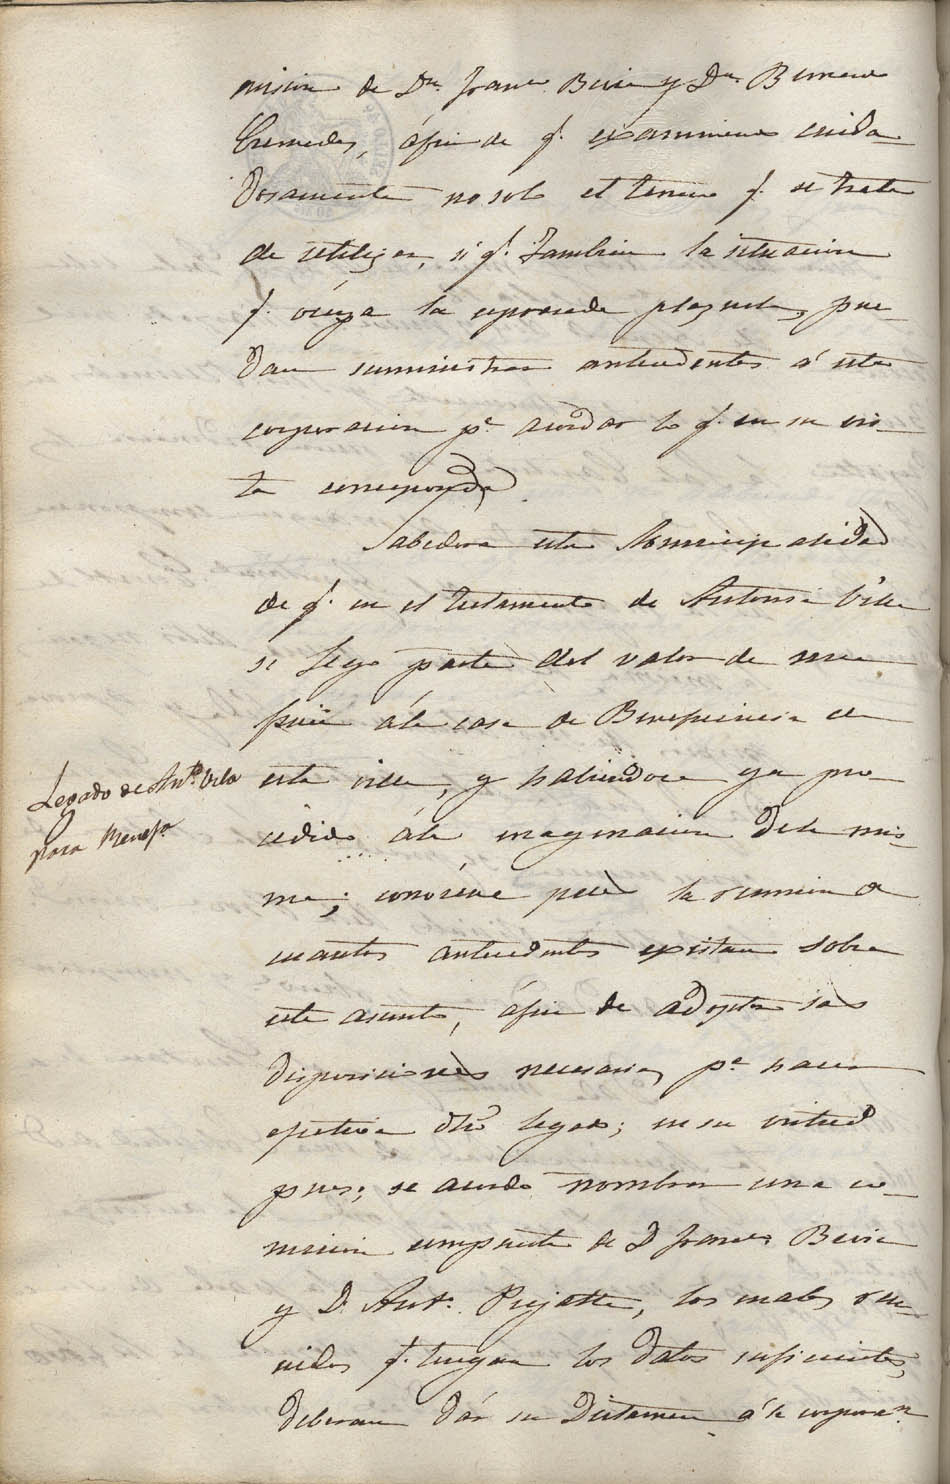 mision de Dn. Franco. Beviá y Dn. Bernardo
Cremades, áfin de q. examinen cuida-
dosamente no solo el terreno q. se trata
de utilizar, si q. tambien la situacion
q. ocupa la espresada plazuela, pue-
dan suministrar antecedentes á esta
corporacion pa. acordar lo q. en su vis-
ta corresponda
Sabedora esta Municipalidad
de q. en el testamento de Antonia Vila
se legó parte del valor de una
finca á la casa de Beneficencia de
esta villa, y habiendose ya pro
cedido á la enagenacion dela mis-
ma; conviene pues la reunion de
cuantos antecedentes existan sobre
este asunto, áfin de adoptar las
disposiciones necesarias pa. hacer
efectivo dho legado; en su virtud
pues, se acordó nombrar una co-
mision compuesta de D Franco. Beviá
y D. Anto. Pujalte, los cuales reu-
nidos q. tengan los datos suficientes,
deberan dár su dictamen á la corporan.
Legado de Anta. Vila
para Benefa.